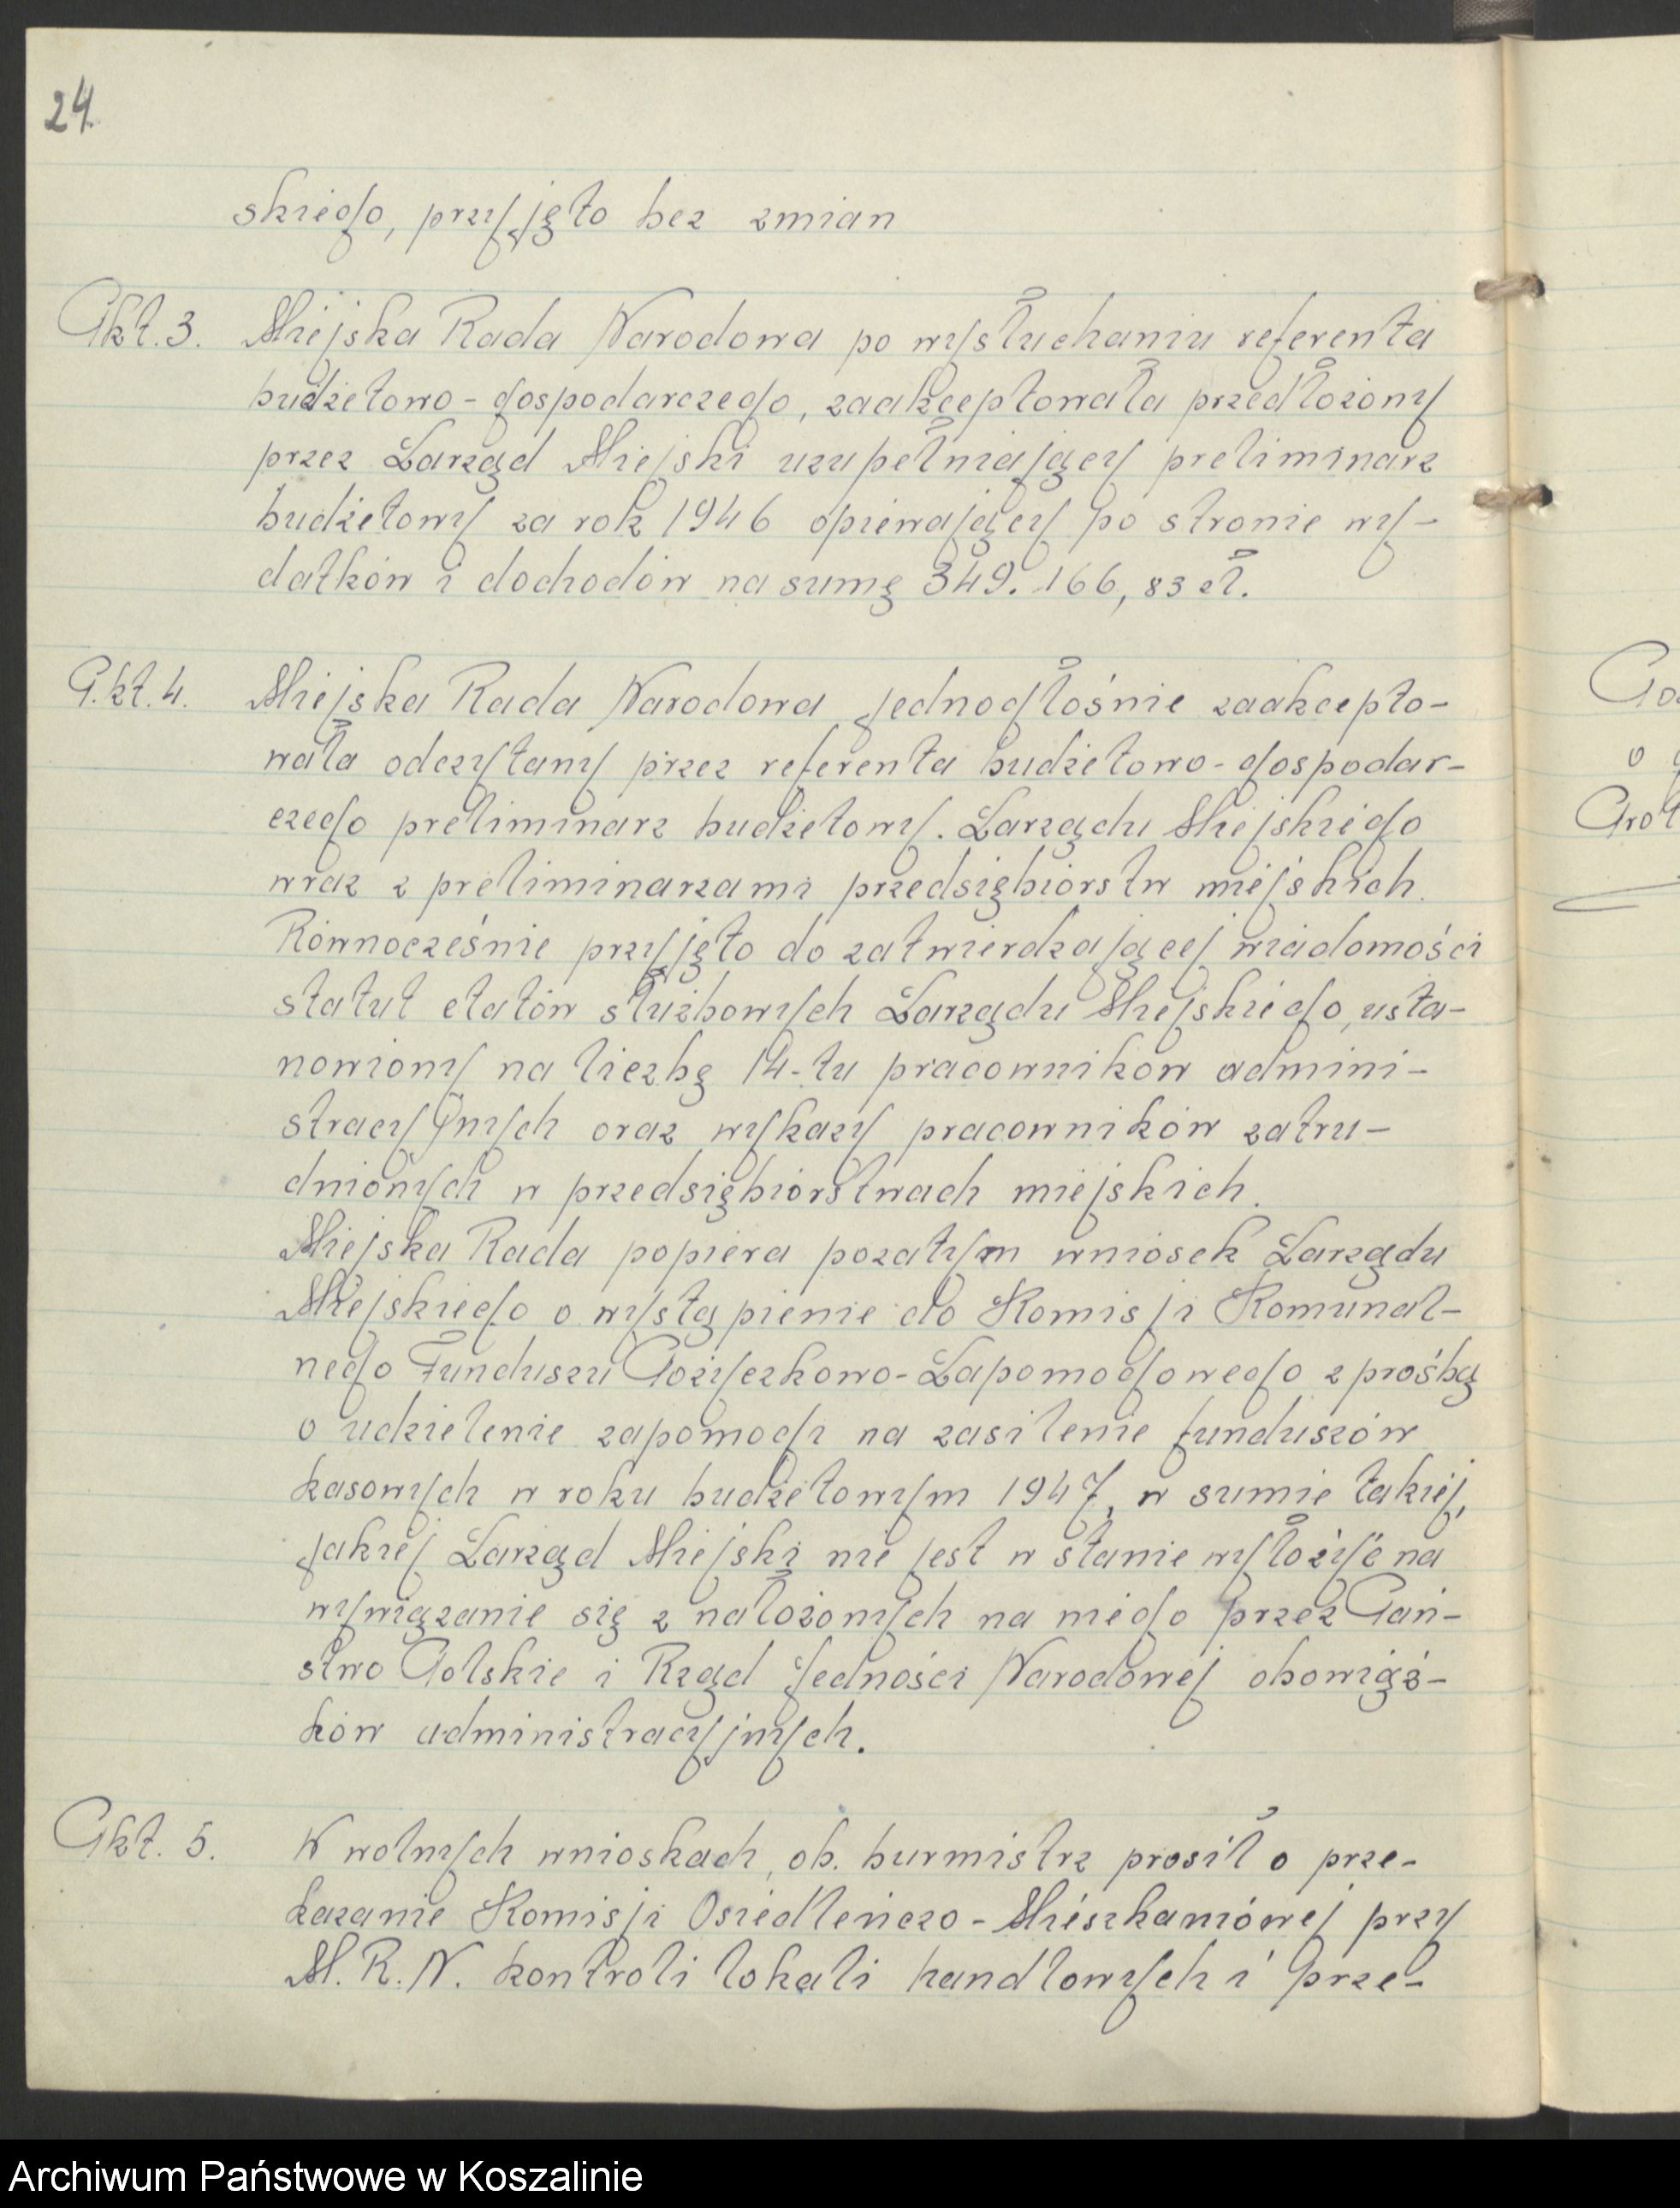 24.
skiego, przyjęto bez zmian
Pkt. 3. Miejska Rada Narodowa po wysłuchaniu referenta
budżetowo-gospodarczego, zaakceptowała przedłożony
przez Zarząd Miejski uzupełniający preliminarz
budżetowy za rok 1946 opiewający po stronie wy-
datków i dochodów na sumę 349.166,83 zł.
P.kt. 4. Miejska Rada Narodowa jednogłośnie zaakcepto-
wała odczytany przez referenta budżetowo-gospodar-
czego preliminarz budżetowy. Zarządu Miejskiego
wraz z preliminarzami przedsiębiorstw miejskich.
Równocześnie przyjęto do zatwierdzającej wiadomości
statut etatów służbowych Zarządu Miejskiego, usta-
nowiony na liczbę 14-tu pracowników admini-
stracyjnych oraz wykazy pracowników zatru-
dnionych w przedsiębiorstwach miejskich.
Miejska Rada popiera pozatym wniosek Zarządu
Miejskiego o wystąpienie do Komisji Komunal-
nego Funduszu Pożyczkowo-Zapomogowego z prośbą
o udzielenie zapomogi na zasilenie funduszów
kasowych w roku budżetowym 1947, w sumie takiej,
jakiej Zarząd Miejski nie jest w stanie wyłożyć na
wywiązanie się z nałożonych na niego przez Pań-
stwo Polskie i Rząd Jedności Narodowej obowiąz-
ków administracyjnych.
Pkt. 5. W wolnych wnioskach, ob. burmistrz prosił o prze-
kazanie Komisji Osiedleńczo-Mieszkaniówej przy
M.R.N. kontroli lokali handlowych i prze-
Archiwum Państwowe w Koszalinie